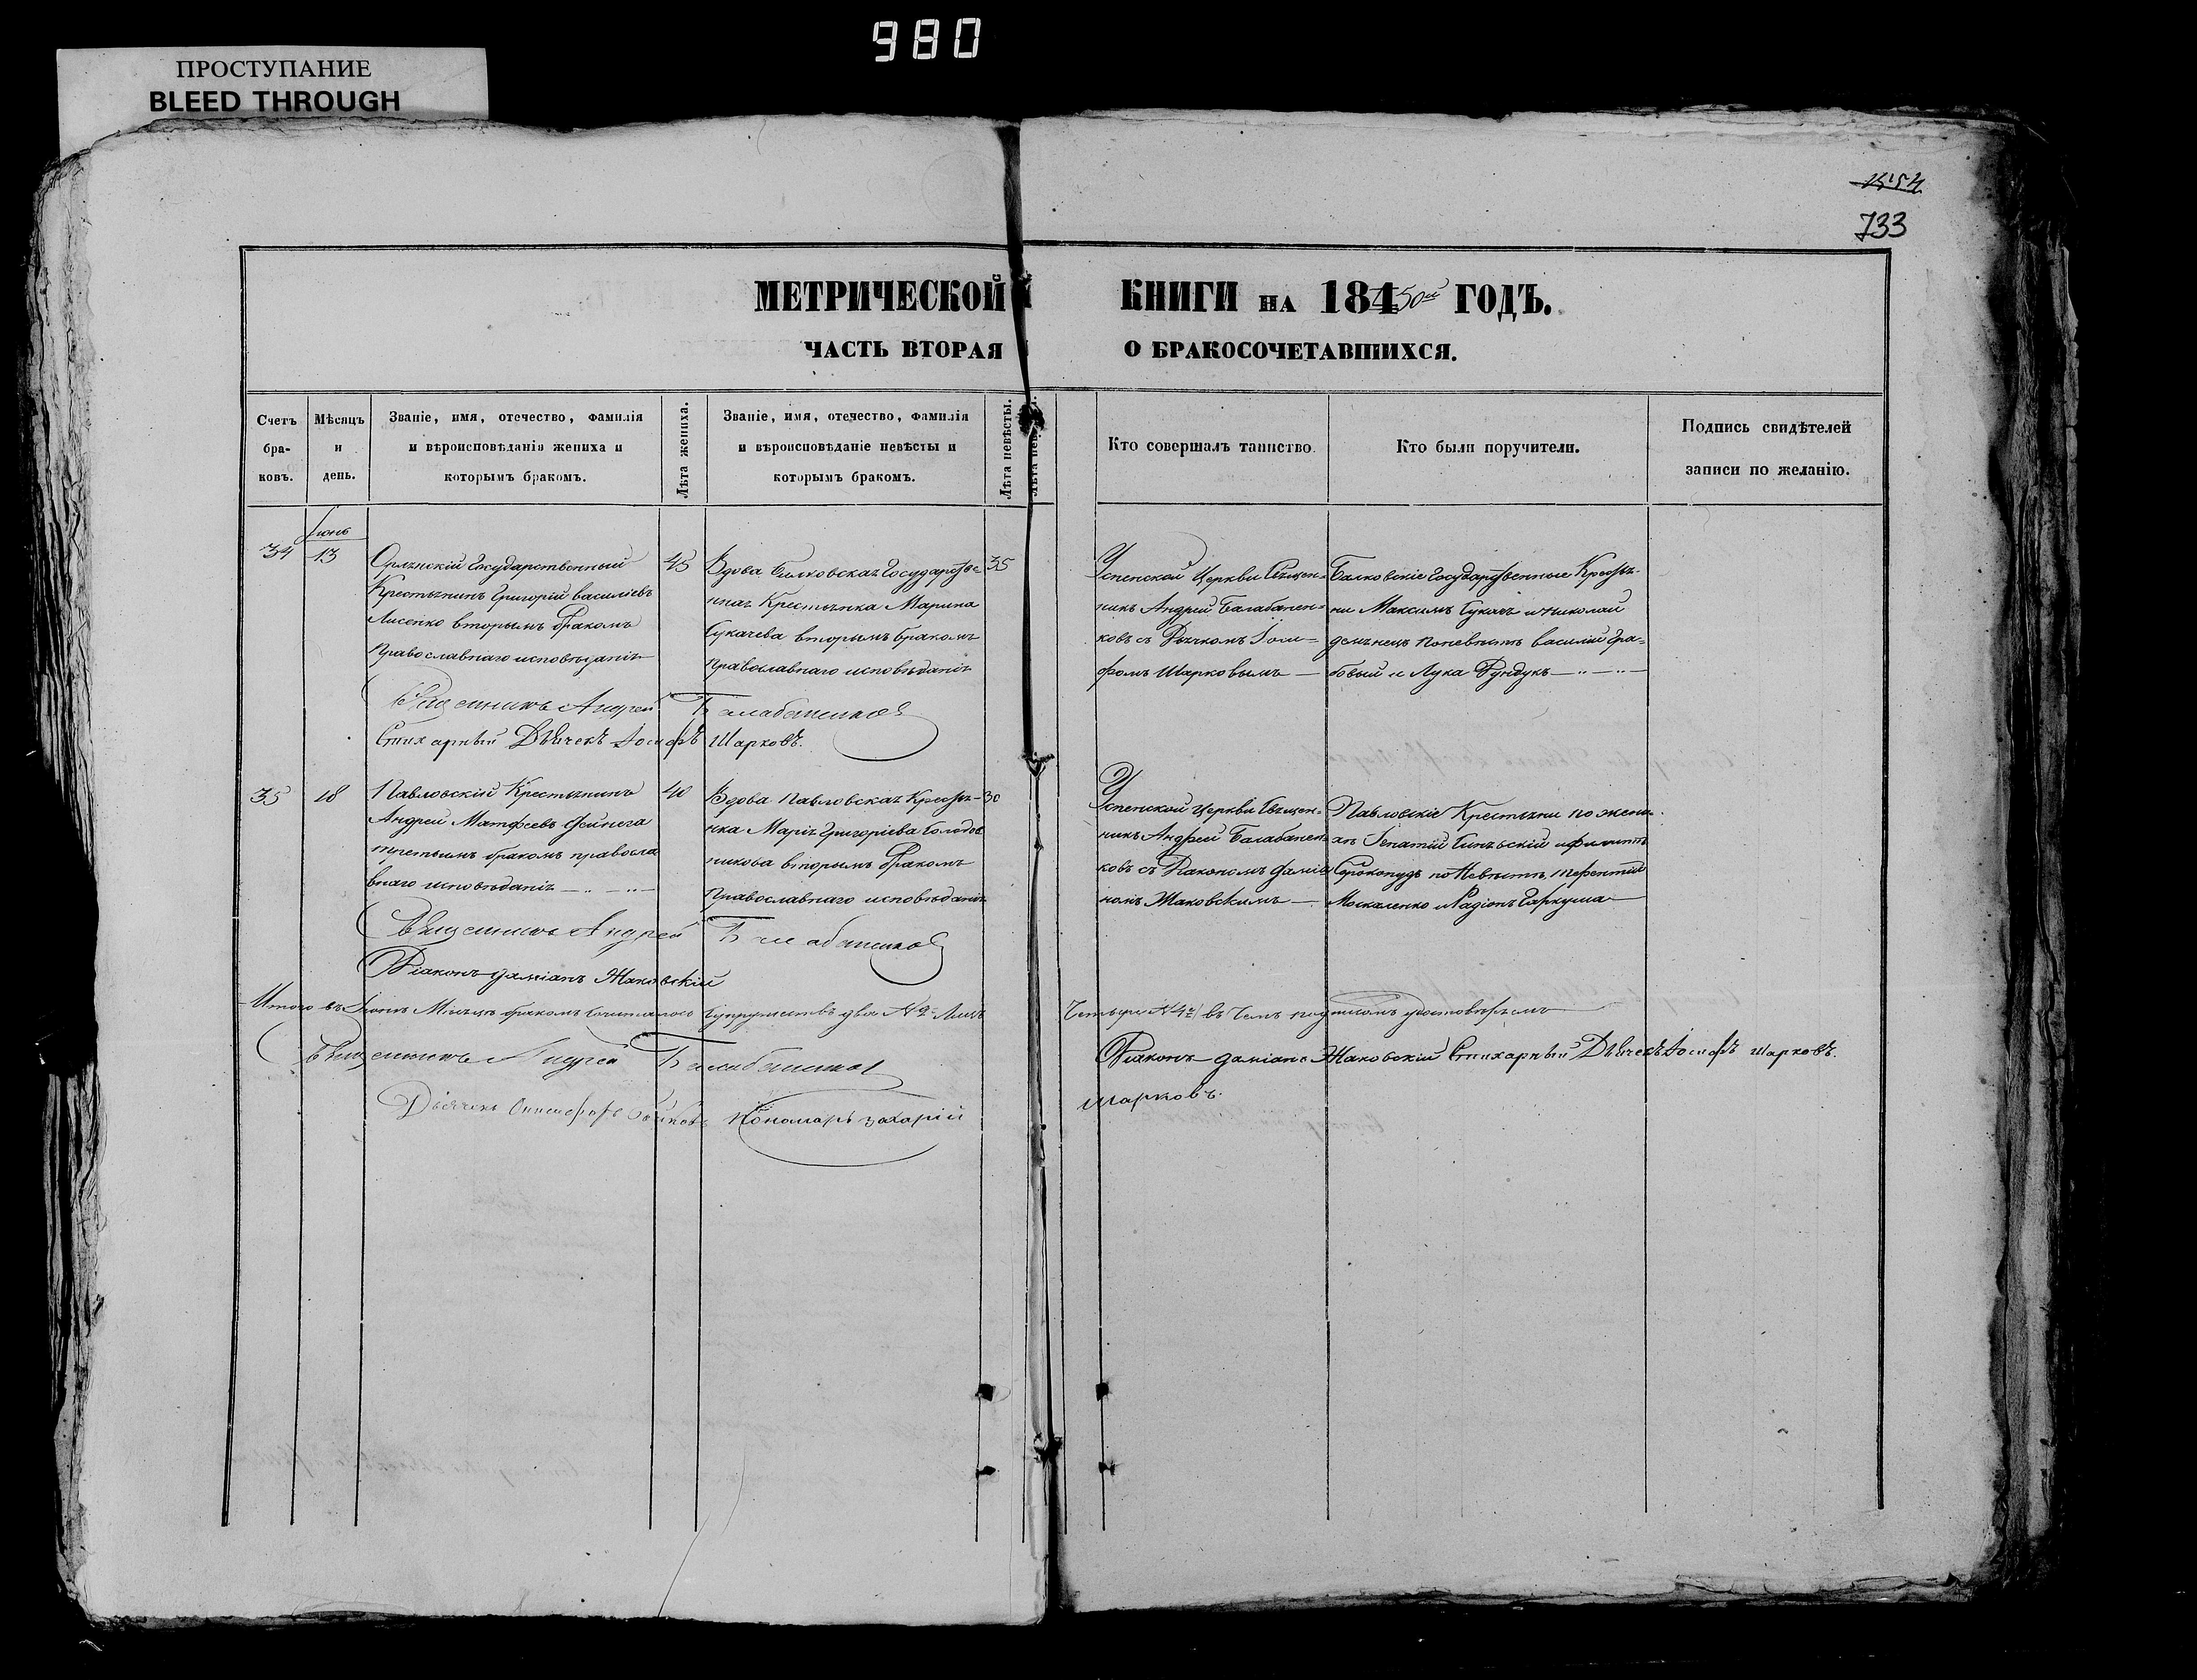 980
ПРОСТУПАНИЕ
BLEED THROUGH
733
МЕТРИЧЕСКОЙ КНИГИ НА 18450й ГОДЪ.
ЧАСТЬ ВТОРАЯ О БРАКОСОЧЕТАВШИХСЯ.
Счетъ бра-ковъ.
Мѣсяцъ и день.
Званіе, имя, отечество, фамилія
и вѣроисповѣданія жениха и
которымъ бракомъ.
Лѣта жениха.
Званіе, имя, отечество, фамилія
и вѣроисповѣданіе невѣсты и
которымъ бракомъ.
Лѣта невѣсты.
Кто совершалъ таинство.
Кто были поручители.
Подпись свидѣтелей
записи по желанію.
Іюнь
34
13
Государственный
Крестьянинъ Григорій Васильевъ
Лисенко вторымъ бракомъ
Православнаго исповѣданія
45
Вдова Государстве-
нная Крестьянка Марина
Сукачева вторымъ бракомъ
Православнаго исповѣданія
35
Успенской Церкви Священ-
никъ Андрей Балабанен-
ковъ съ Дьячкомъ Іоси-
фомъ Шарковымъ
Балковскіе Государственные Крестья-
ни Максимъ Сукачъ и Николай
по невѣстѣ Василій Гра-
бовый и Лука Рундукъ
Священникъ Андрей Балабаненковъ
Стихарный Дьячекъ Іосифъ Шарковъ.
35
18
Павловскій Крестьянинъ
Андрей Матфеевъ
третьимъ бракомъ правосла
внаго исповѣданія
40
Вдова Павловская Крестья-
нка Марія Григоріева Солодов
никова вторымъ бракомъ
Православнаго исповѣданія
30
Успенской Церкви Священ-
никъ Андрей Балабанен-
ковъ съ Діакономъ Даміа
номъ Жаковскимъ
Павловскіе Крестьяни по жени-
хѣ Игнатій
Сорокопудъ по Невѣстѣ, Терентій
Москаленко и Радіонъ Гаркуша
Священникъ Андрей Балабаненковъ
Діаконъ Даміанъ Жаковскій
Итого въ Іюнѣ Мѣсяцѣ бракомъ Сочеталось Супружествъ два № 2 Лицъ
Четыре № 4 въ Чемъ подписомъ удостовѣряемъ
Священникъ Андрей Балабаненковъ
Діаконъ Даміанъ Жаковскій Стихарный Дьячекъ Іосифъ Шарковъ.
Дьячекъ Пономарь Захарій
Шарковъ.